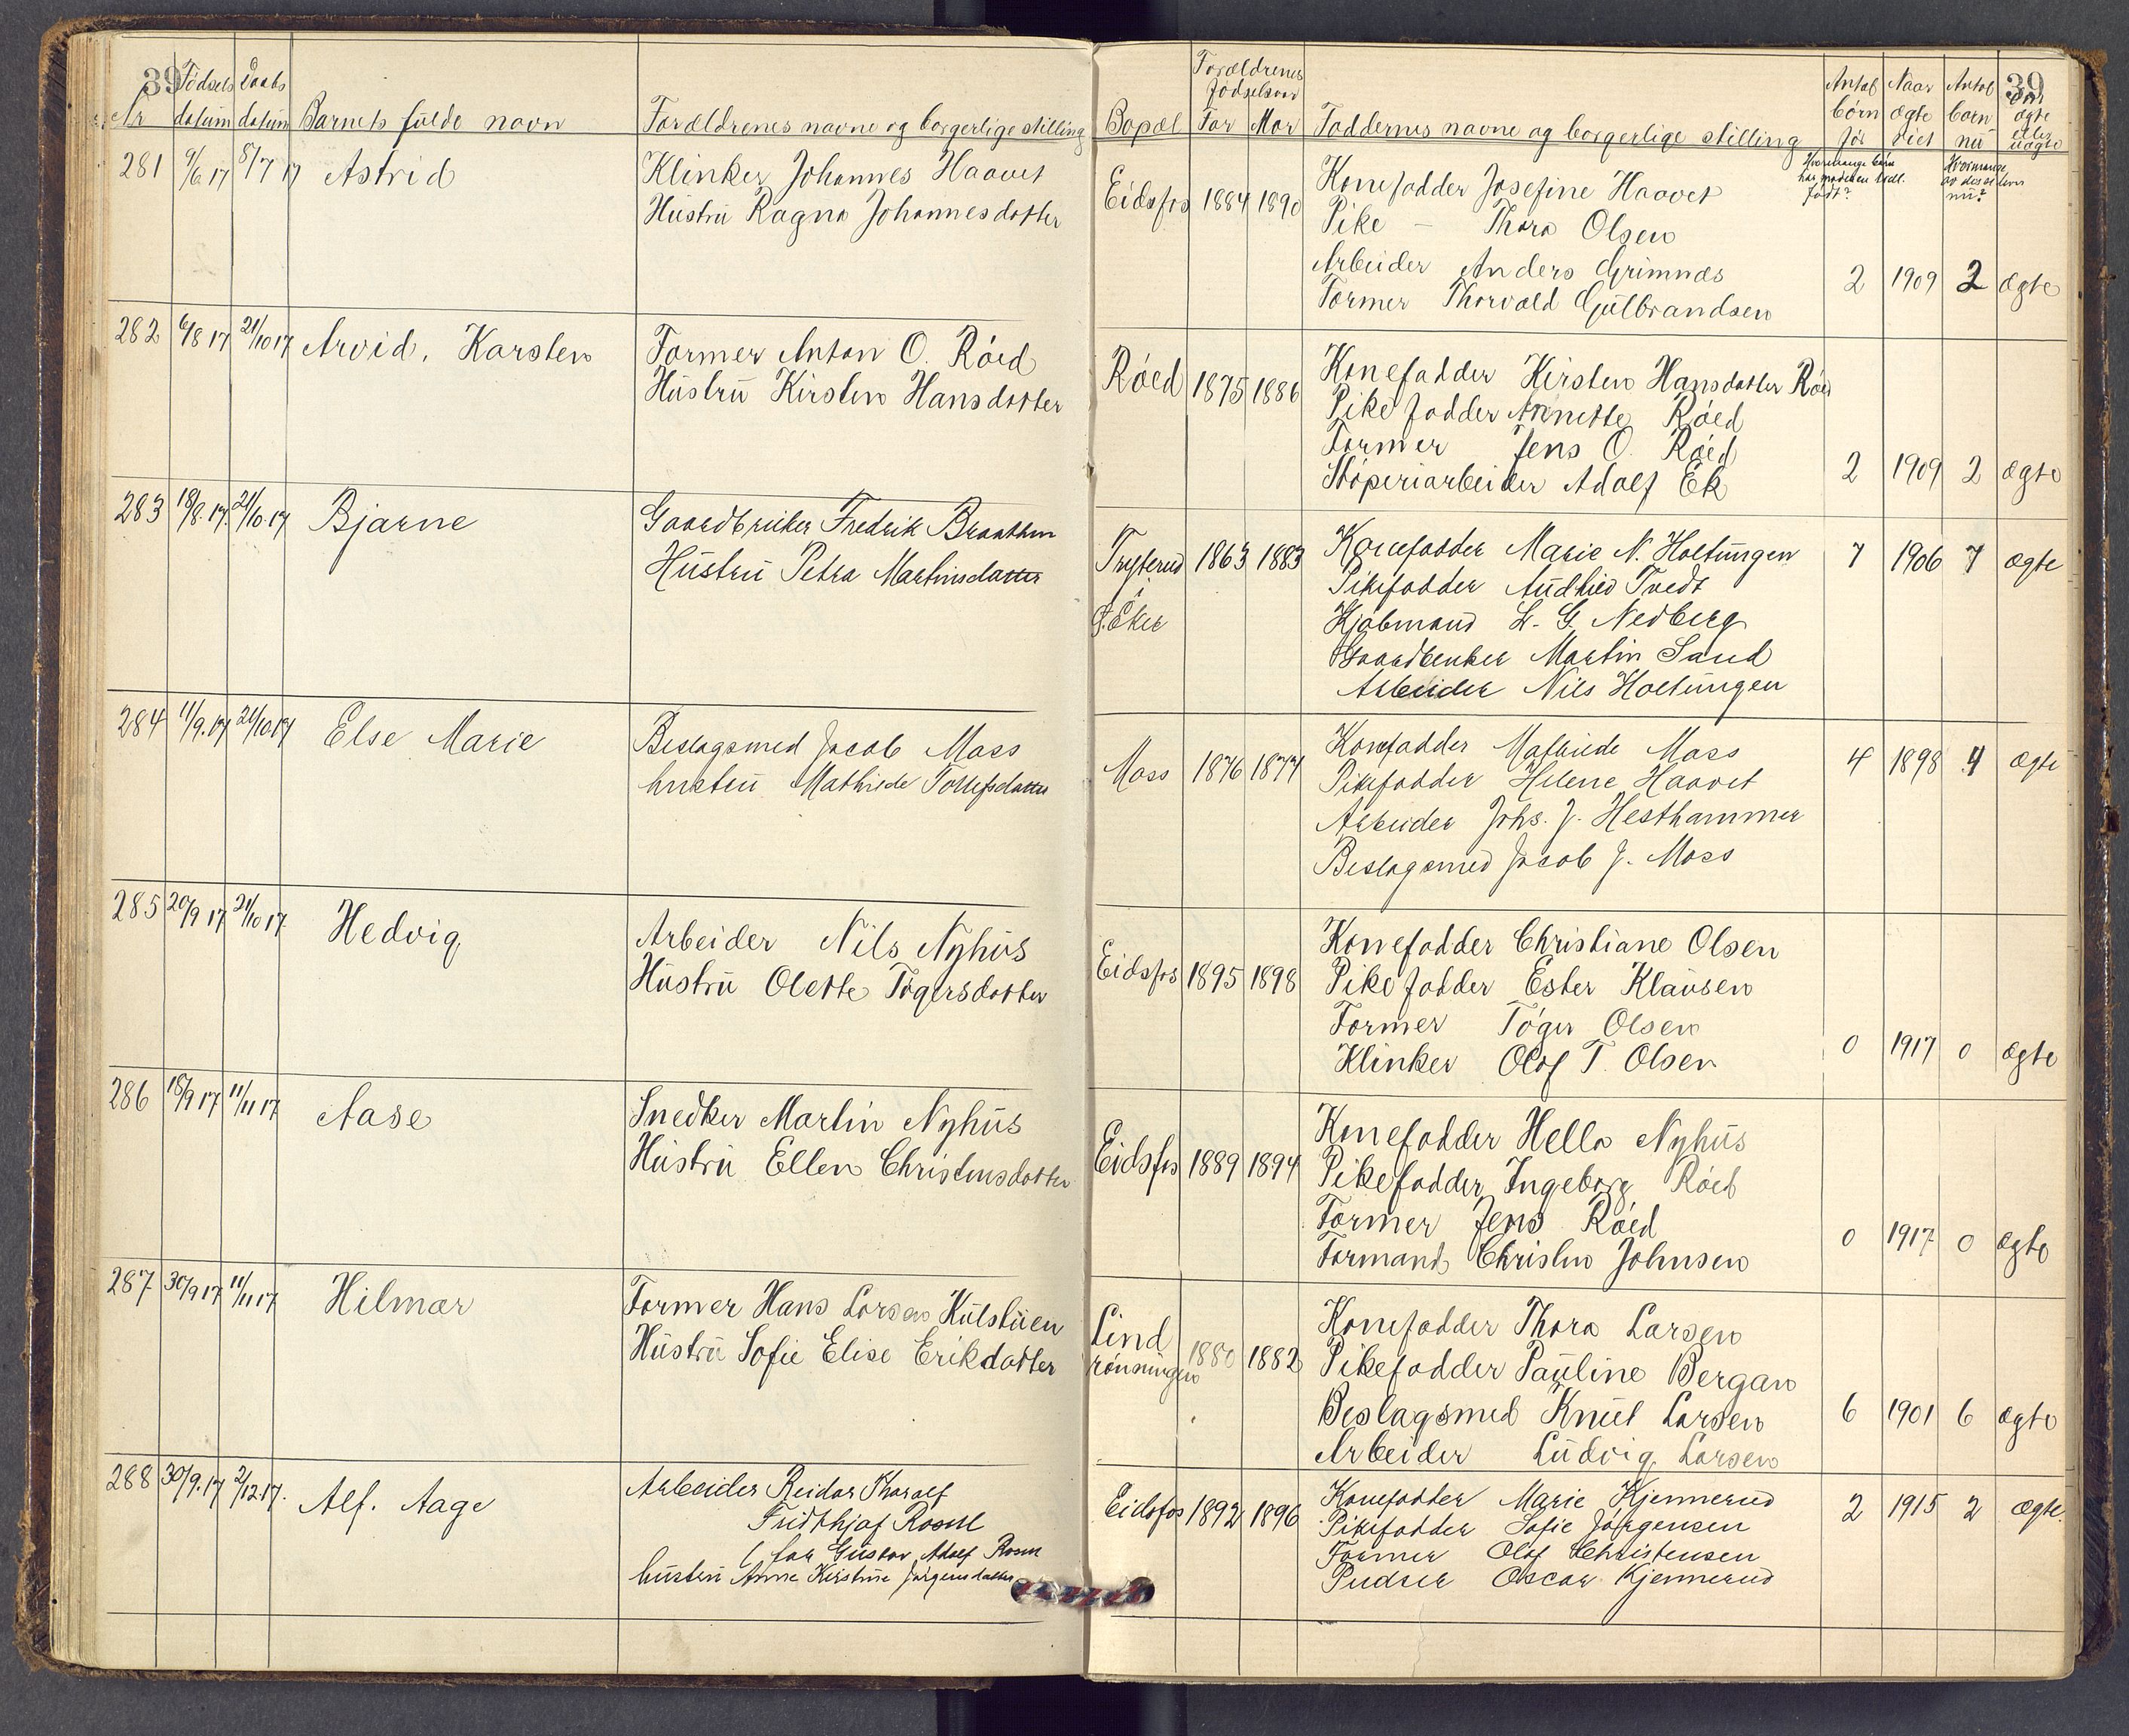 39
Nr Fødsels datum Daabs datum Barnets fulde navn Forældrenes navne og borgerlige stilling
281 9/6 17 8/7 17 Astrid Klinker Johannes Haavet
Hustru Ragna Johannesdatter
282 6/8 17 21/10 17 Arvid, Karsten Former Anton O. Røed
Hustru Kirsten Hansdatter
283 18/8.17. 21/10.17 Bjarne Gaardbruker Fredrik Braathen
Hustru Petra Martinsdatter
284 11/9.17 21/10.17 Else Marie Beslagsmed Jacob Moss
hustru Mathilde Tollefsdatter
285 20/9 17 21/10 17. Hedvig Arbeider Nils Nyhus
Hustru Olette Tøgersdatter
286 18/9 17 11/11 17 Aase Snedker Martin Nyhus
Hustru Ellen Christensdatter
287 30/9 17 11/11 17 Hilmar Former Hans Larsen Kulstuen
Hustru Sofie Elise Erikdatter
288 30/9.17 2/12.17. Alf. Aage Arbeider Reidar Tharalf
Fridthjof Rosen
(far Gustav Adolf Rosen
hustru Anne Kirstine Jørgensdatter
39
Bopæl Forældrenes fødselsaar Far Mor Faddernes navne og borgerlige stilling Antal børn før Naar ægte viet Antal børn nu Om ægte eller uægte
Hvormange børn har moderen født?
Hvormange av disse lever nu?
Eidsfos 1884 1890 Konefadder Josefine Haavet
Pike – Thora Olsen
Arbeider Anders Grimnæs 2 1909 2 ægte
Former Thorvald Gulbrandsen
Røed 1875 1886 Konefadder Kirsten Hansdatter Røed
Pikefadder Annette Røed
Former Jens O. Røed
Støperiarbeider Adolf Ek 2 1909 2 ægte
Tryterud 1863 1883 Konefadder Marie N. Holtungen 7 1906 7 ægte
Pikefadder Audhild Tvedt
Ø. Eker Kjøbmand L. G. Nedberg
Gaardbruker Martin Sand
Arbeider Nils Holtungen
Moss 1876 1877 Konefadder Mathilde Moss 4 1898 4 ægte
Pikefadder Helene Haavet
Arbeider Johs. J. Hesthammer
Beslagsmed Jacob J. Moss
Eidsfos 1895 1898 Konefadder Christiane Olsen
Pikefadder Ester Klausen
Former Tøger Olsen
Klinker Olof T. Olsen 0 1917 0 ægte
Eidsfos 1889 1894 Konefadder Hella Nyhus
Pikefadder Ingeborg Røed
Former Jens Røed
Formand Christen Johnsen 0 1917 0 ægte
Lindrønningen 1880 1882 Konefadder Thora Larsen
Pikefadder Pauline Bergan
Beslagsmed Knut Larsen 6 1901 6 ægte
Arbeider Ludvig Larsen
Eidsfos 1892 1896 Konefadder Marie Kjennerud 2 1915 2 ægte.
Pikefadder Sofie Jørgensen
Former Olof Christensen
Pudser Oscar Kjennerud